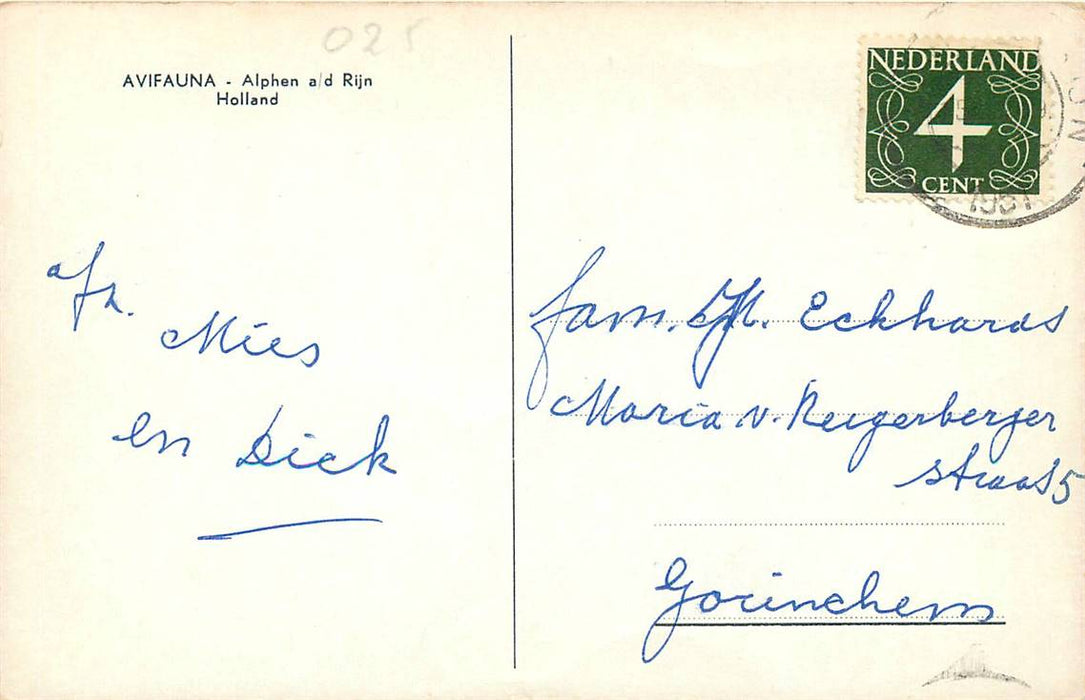 025
AVIFAUNA - Alphen a/d Rijn
Holland
NEDERLAND
4
CENT
1957
afz.
Mies
en Dick
fam. Eckhardt
Maria v. Reigerberger
straat 5
Gorinchem